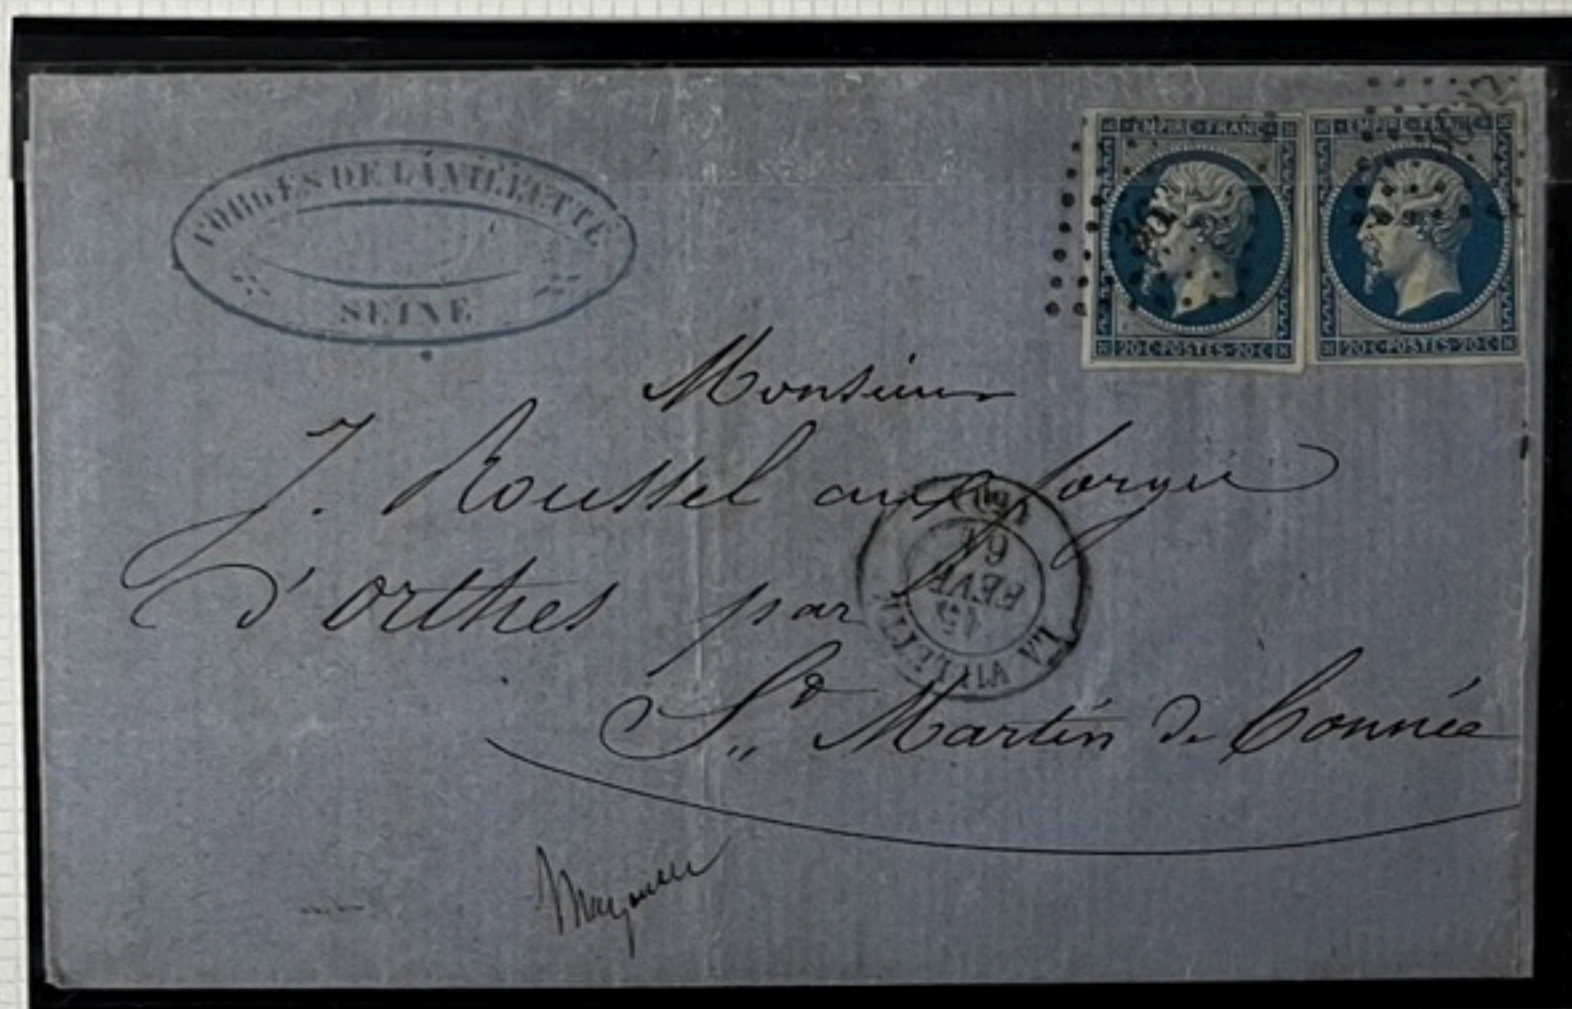 FORGES DE LA VILLETTE
SEINE
EMPIRE FRANC
20 C POSTES 20 C
EMPIRE FRANC
20 C POSTES 20 C
Monsieur
J. Roussel aux forges
d'orthes par
St Martin de Connée
LA VILLETTE
FEVR